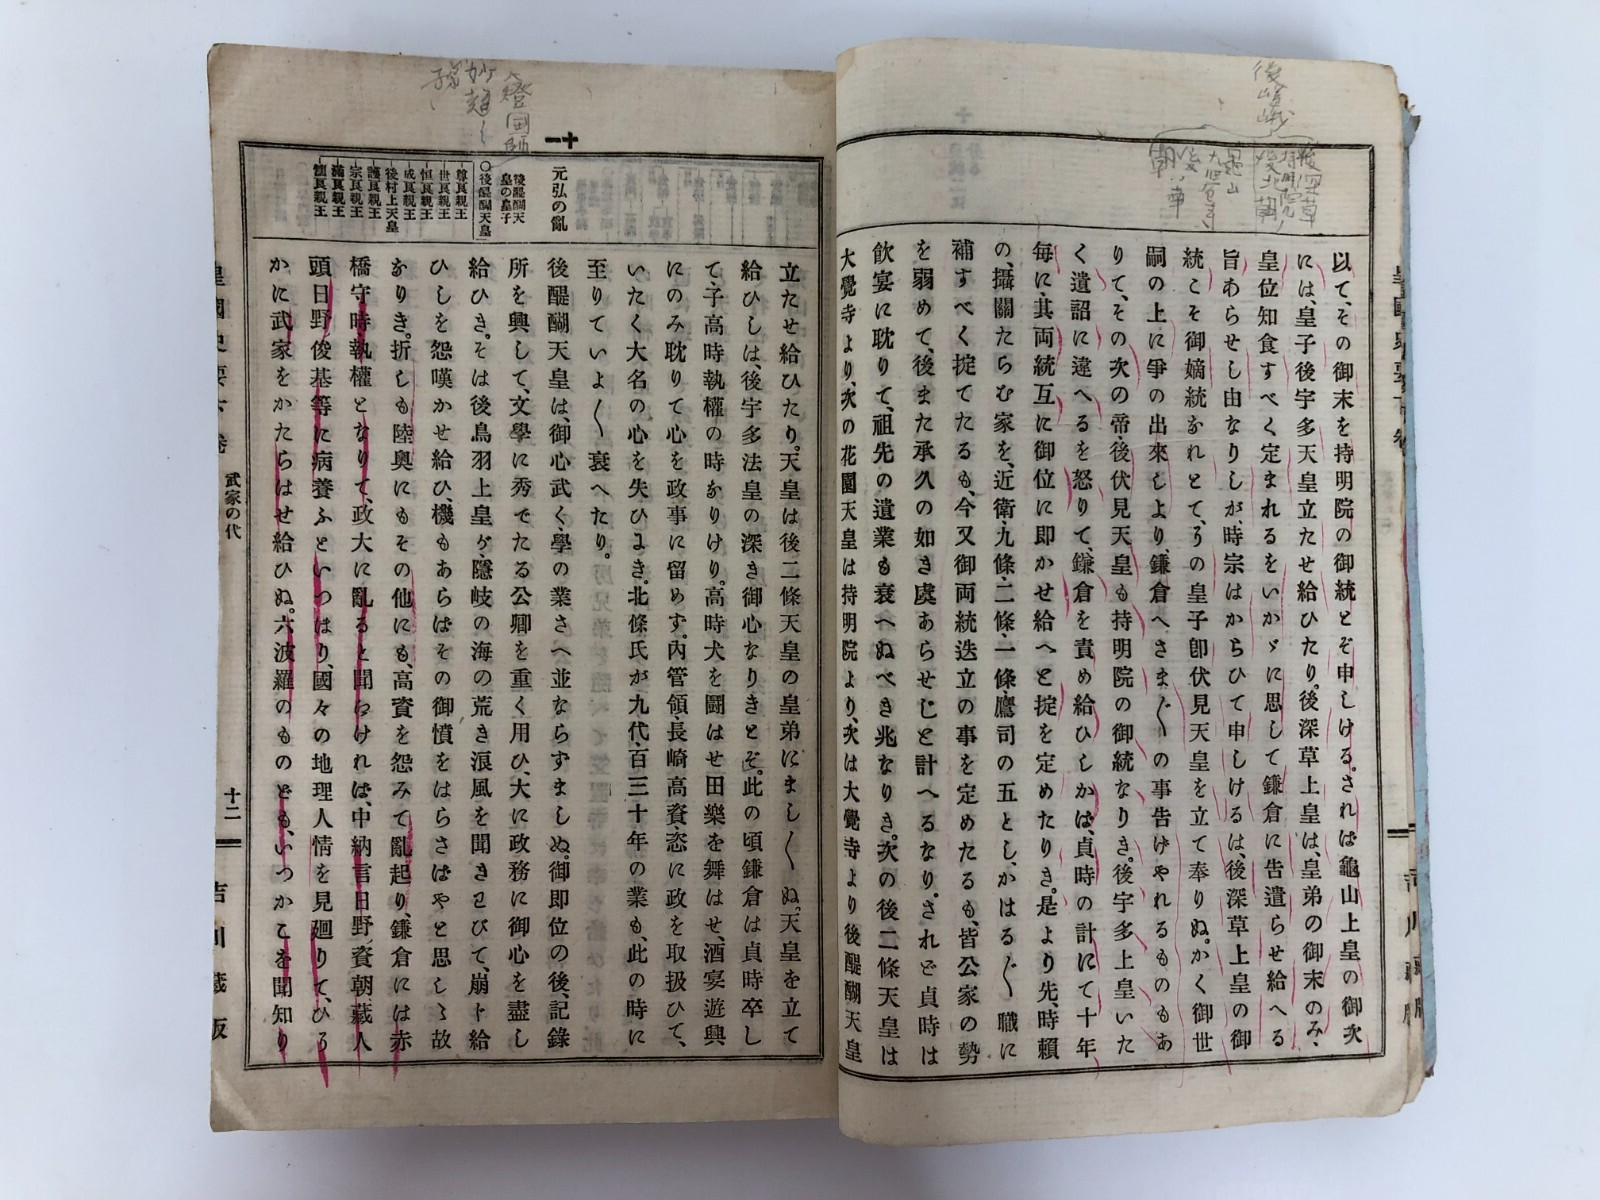 後嵯峨
以て、その御末を持明院の御統とぞ申しける。されば龜山上皇の御次
には、皇子後宇多天皇立たせ給ひたり。後深草上皇は、皇弟の御末のみ、
皇位知食すべく定まれるをいかゞに思して鎌倉に告遣らせ給へる
旨あらせし由なりしが、時宗はからひて申しけるは、後深草上皇の御
統こそ御嫡統なれとて、その皇子卽伏見天皇を立て奉りぬ。かく御世
嗣の上に爭の出來しより、鎌倉へさま〴〵の事告げやれるものもあ
りて、その次の帝、後伏見天皇も持明院の御統なりき。後宇多上皇いた
く遺詔に違へるを怒りて、鎌倉を責め給ひしかば、貞時の計にて十年
每に、其両統互に御位に卽かせ給へと掟を定めたりき。是より先、時賴
の、攝關たらむ家を、近衛、九條、二條、一條、鷹司の五とし、かはる〴〵職に
補すべく掟てたるも、今又御両統迭立の事を定めたるも、皆公家の勢
を弱めて、後また承久の如き虞あらせじと計へるなり。されど貞時は
飮宴に耽りて、祖先の遺業も衰へぬべき兆なりき。次の後二條天皇は
大覺寺より、次の花園天皇は持明院より、次は大覺寺より後醍醐天皇
十一
元弘の亂
後醍醐天皇の皇子
○後醍醐天皇
尊良親王
世良親王
恒良親王
成良親王
後村上天皇
護良親王
宗良親王
滿良親王
懷良親王
立たせ給ひたり。天皇は後二條天皇の皇弟にまし〳〵ぬ。天皇を立て
給ひしは、後宇多法皇の深き御心なりきとぞ。此の頃鎌倉は貞時卒し
て、子高時執權の時なりけり。高時犬を鬪はせ田樂を舞はせ、酒宴遊興
にのみ耽りて心を政事に留めず。內管領、長崎高資、恣に政を取扱ひて、
いたく大名の、心を失ひにき。北條氏が九代、百三十年の業も、此の時に
至りていよ〳〵衰へたり。
後醍醐天皇は、御心武く、學の業さへ並ならずましぬ。御卽位の後、記錄
所を興して、文學に秀でたる公卿を重く用ひ、大に政務に御心を盡し
給ひき。そは後鳥羽上皇が、隱岐の海の荒き浪風を聞きわびて、崩し給
ひしを怨嘆かせ給ひ、機もあらばその御憤をはらさばやと思しゝ故
なりき。折しも陸奧にもその他にも、高資を怨みて亂起り、鎌倉には赤
橋守時執權となりて、政大に亂ると聞ねければ、中納言日野資朝、藏人
頭日野俊基等に病養ふといつはり、國々の地理人情を見廻りて、ひそ
かに武家をかたらはせ給ひぬ。六波羅のものども、いつかこを聞知り
武家の代
十二
吉川藏版